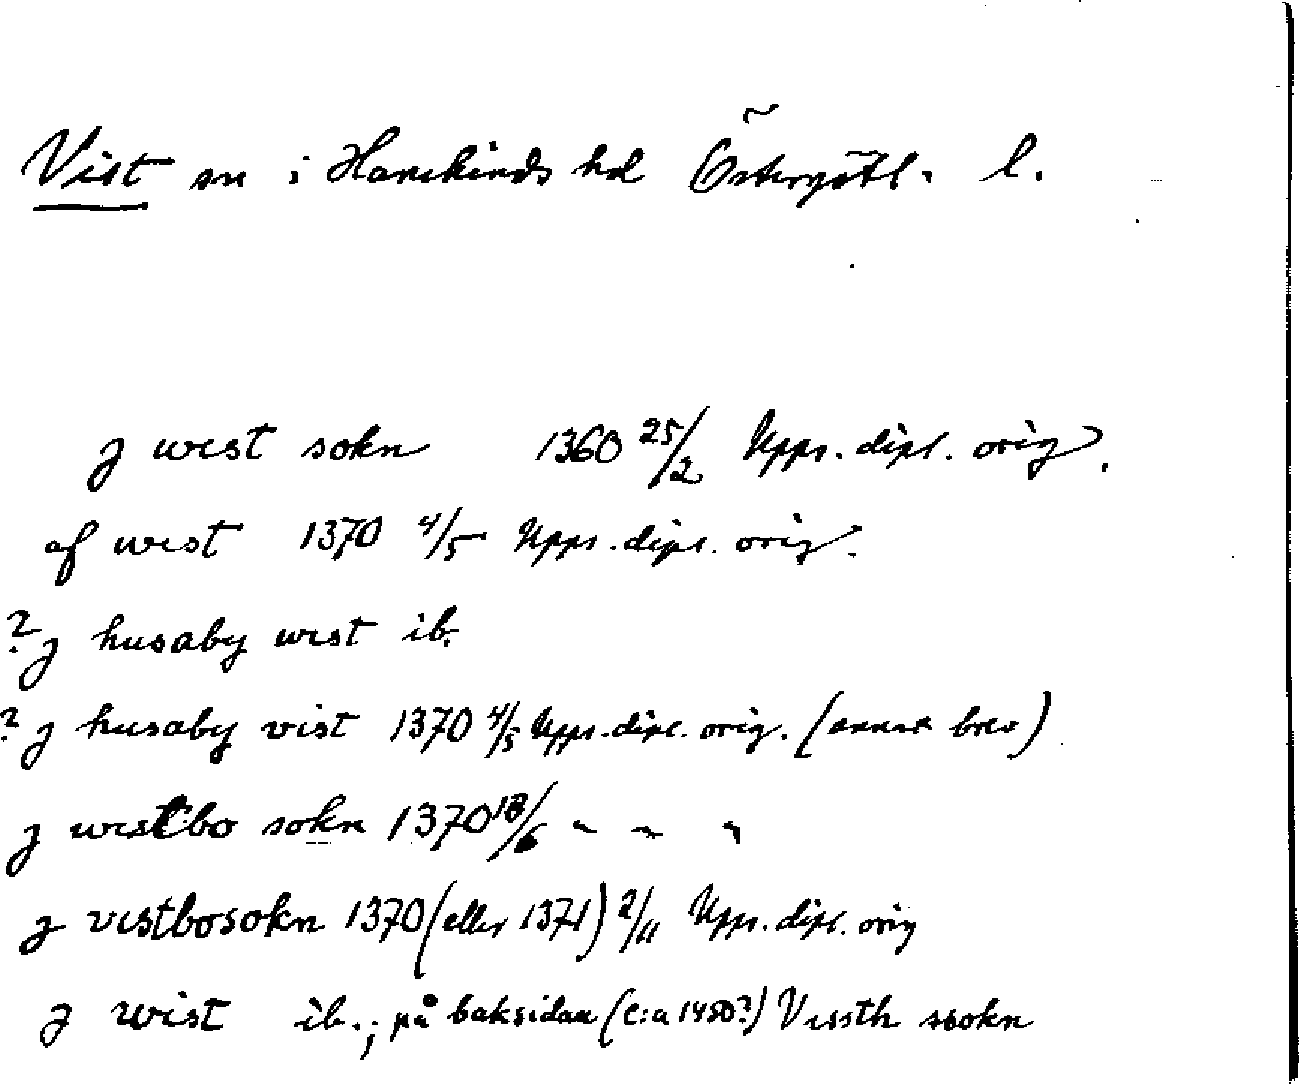 Vist sn i Hanekinds hd Östergötl. l.
j west sokn 1360 25/2 Upps. dipl. orig.
af west 1370 4/5 Upps. dipl. orig.
? j husaby west ib.
? j husaby vist 1370 4/5 Upps. dipl. orig. (annat brev)
j westbo sokn 1370 18/6 " " "
j vestbosokn 1370 (eller 1371) 2/11 Upps. dipl. orig
j wist ib.; på baksidan (c:a 1450?) Vissth ssokn